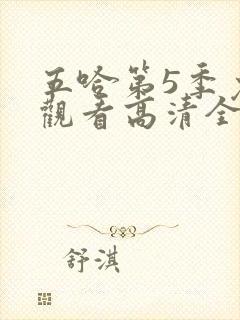 五哈第5季
觀看高清全
舒淇